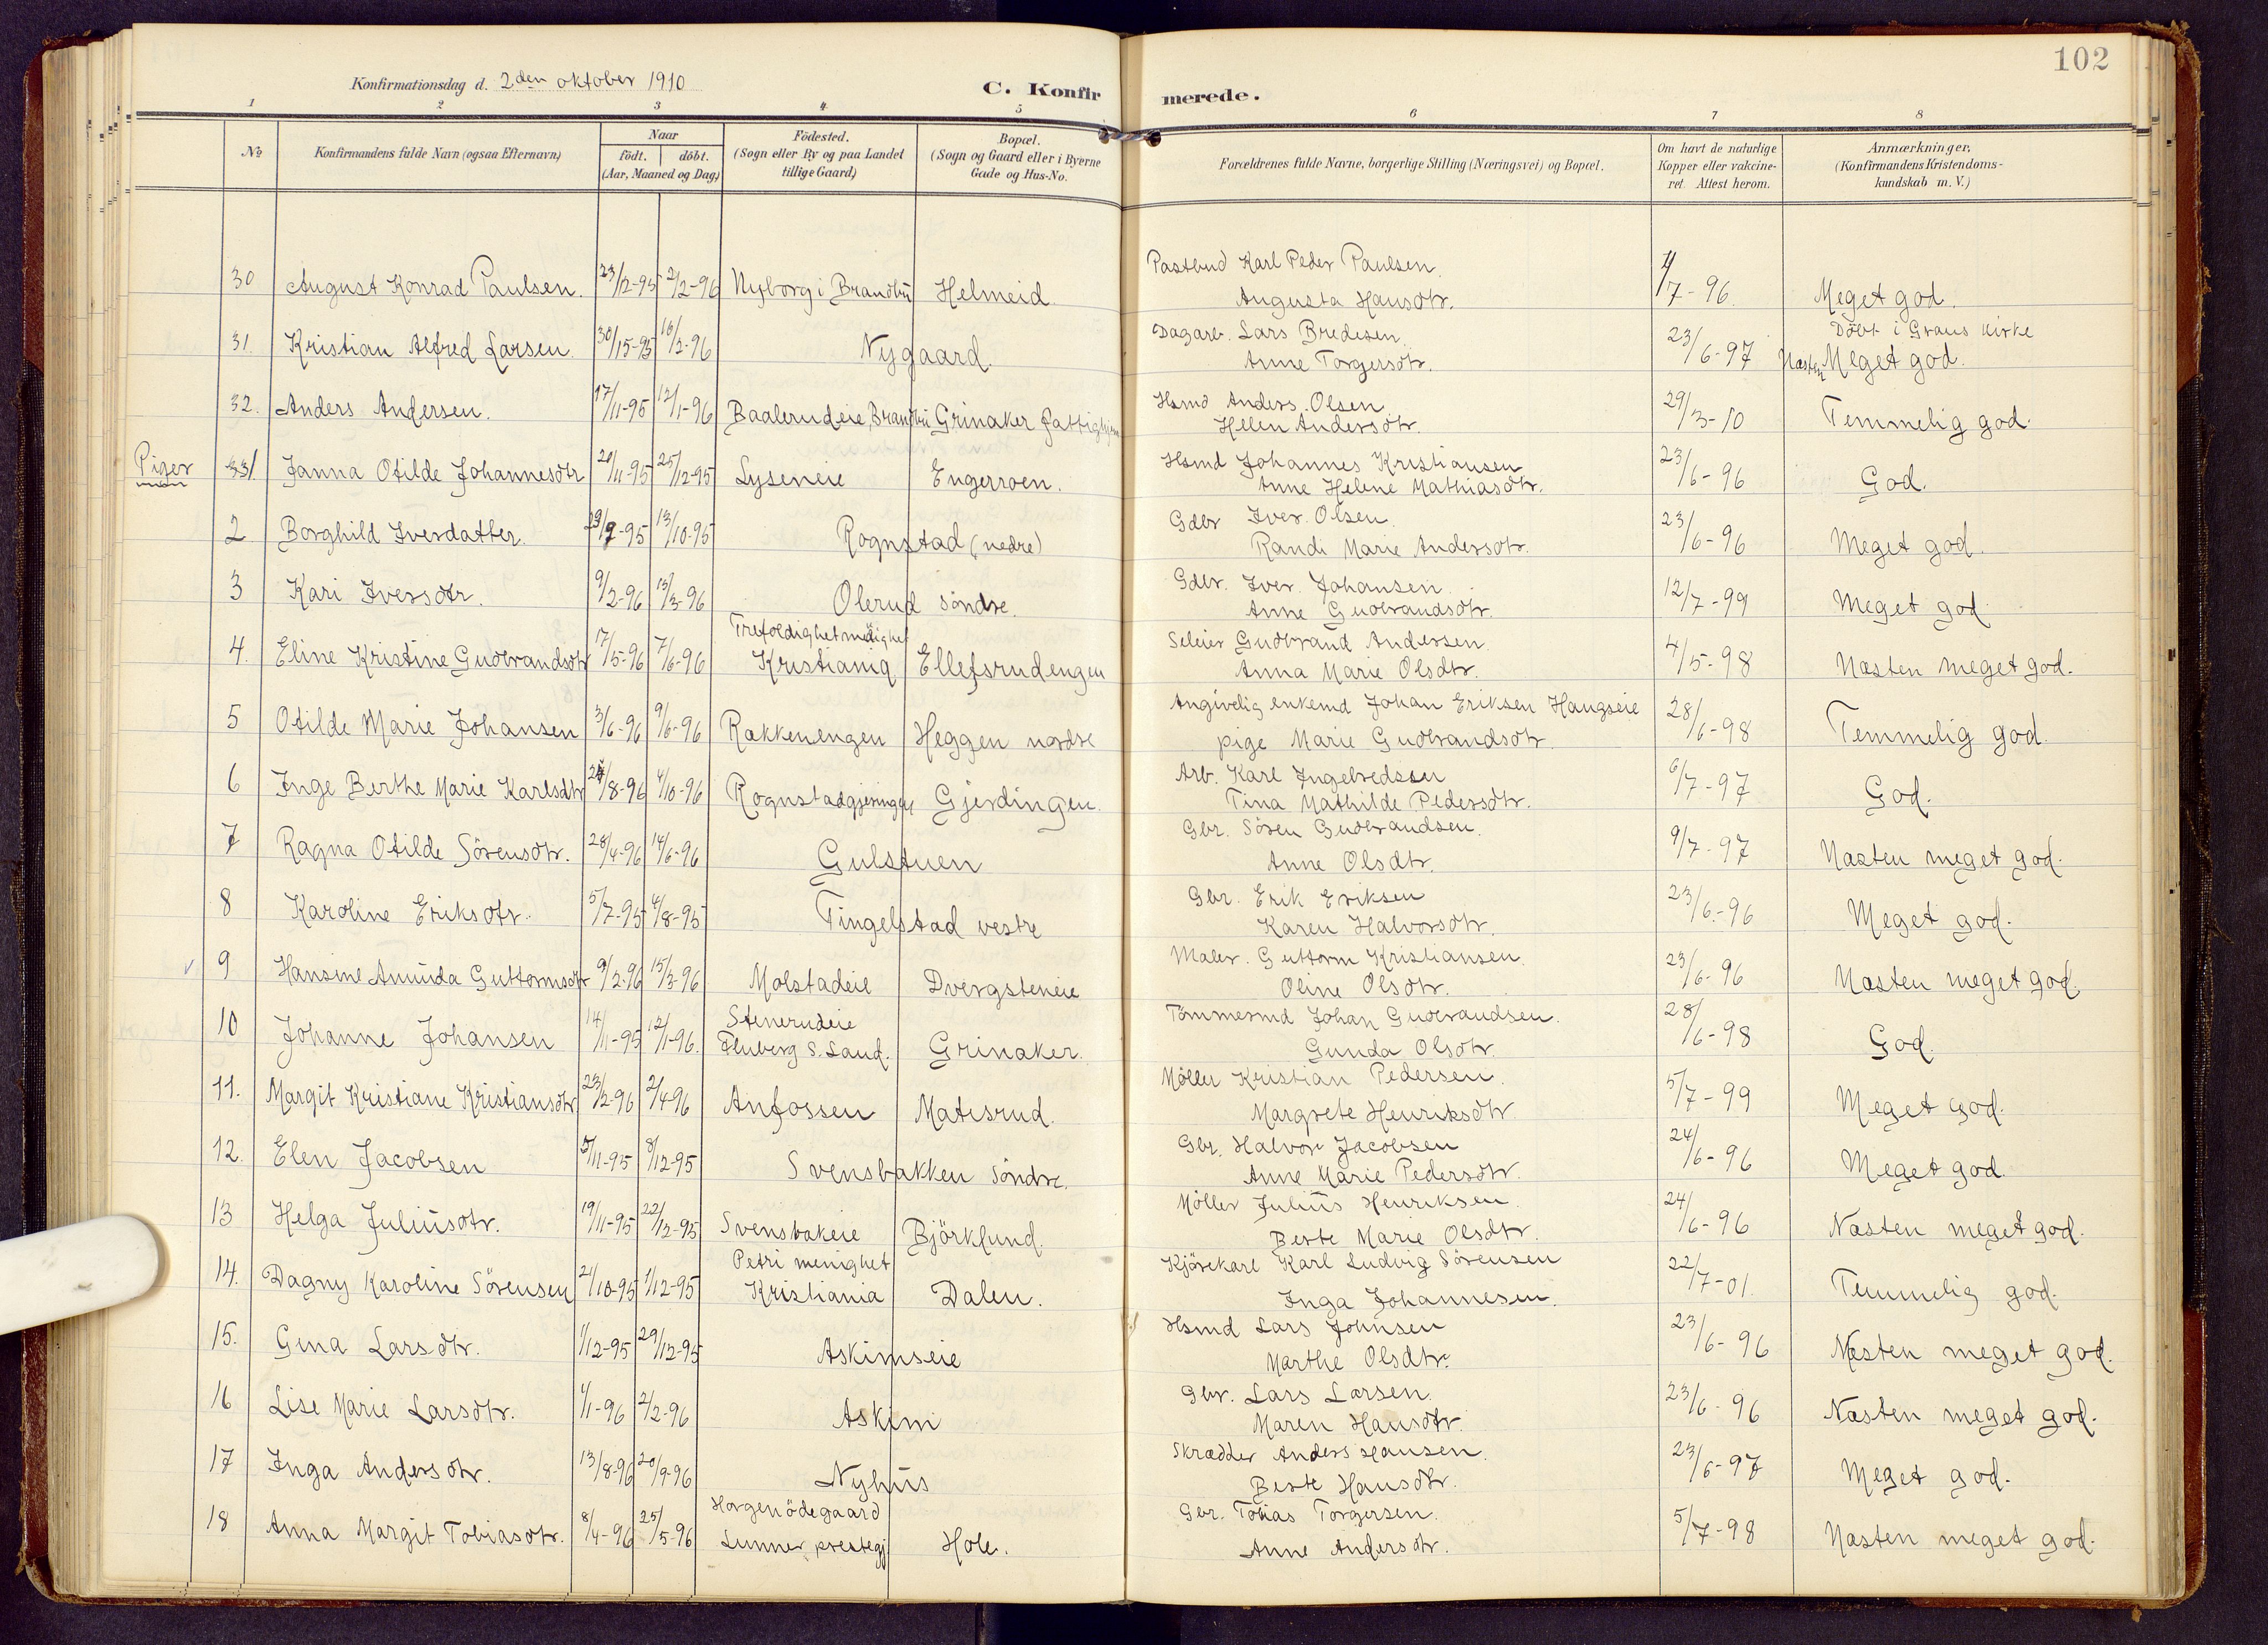 102
Konfirmationsdag d. 2den oktober 1910
C. Konfirmerede.
1 2 3 4 5 6 7 8
No
Konfirmandens fulde Navn (ogsaa Efternavn)
Naar
födt. döbt.
(Aar, Maaned og Dag)
Födested.
(Sogn eller By og paa Landet
tillige Gaard)
Bopæl.
(Sogn og Gaard eller i Byerne
Gade og Hus-No.
Forældrenes fulde Navne, borgerlige Stilling (Næringsvei) og Bopæl.
Om havt de naturlige
Kopper eller vakcine-
ret. Attest herom.
Anmærkninger,
(Konfirmandens Kristendoms-
kundskab m. V.)
30 August Konrad Paulsen. 23/12-95 2/2-96 Nyborg i Brandbu Helmeid. Postbud Karl Peder Paulsen.
Augusta Hansdtr. /7-96. Meget god.
31. Kristian Alfred Larsen 16/2-96 Nygaard. Dagarb. Lars Bredesen.
Anne Torgersdtr. 23/6-97 Döbt i Grans kirke
Næsten Meget god.
32. Anders Andersen. 17/11-95 12/1-96 Baalerudeie, Brandbu Grinaker fattighjem Hsmd Anders Olsen
Helen Andersdtr. 29/3-10 Temmelig god.
Piger
1. Janna Otilde Johannesdtr 20/11-95 25/12-95 Lyseneie Engerroen. Hsmd Johannes Kristiansen
Anne Helene Mathiasdtr. 23/6-96 God.
2 Borghild Iverdatter. 29/9-95 13/10-95 Rognstad (nedre) Gdbr Iver Olsen.
Randi Marie Andersdtr. 23/6-96 Meget god.
3 Kari Iversdtr. 9/2-96 15/3-96 Olerud söndre. Gdbr. Iver Johansen.
Anne Gudbrandsdtr. 12/7-99 Meget god
4. Eline Kristine Gudbrandsdtr 17/5-96 7/6-96 Trefoldighet menighet
Kristiania Ellefsrudengen Seleier Gudbrand Andersen
Anna Marie Olsdtr. 4/5-98 Næsten meget god.
5 Otilde Marie Johansen 3/6-96 9/6-96 Rakkenengen Heggen nordre Angivelig enkemd Johan Eriksen Haugseie
pige Marie Gudbrandsdtr. 28/6-98 Temmelig god.
6 Inge Berthe Marie Karlsdtr /8-96 4/10-96 Rognstadgjeringen Gjerdingen. Arb. Karl Ingebredssen
Tina Mathilde Pedersdtr. 6/7-97 God.
7 Ragna Otilde Sörensdtr. 28/4-96 14/6-96 Gulstuen Gbr. Sören Gudbrandsen.
Anne Olsdtr. 9/7-97 Næsten meget god.
8 Karoline Eriksdtr. 5/7-95 4/8-95 Tingelstad vestre Gbr. Erik Eriksen
Karen Halvorsdtr. 23/6-96 Meget god.
9 Hansine Amunda Guttormsdtr 9/2-96 15/3-96 Molstadeie Dvergsteneie Maler. Guttorm Kristiansen.
Oline Olsdtr. 23/6-96 Næsten meget god.
10 Johanne Johansen 14/11-95 12/1-96. Stenerudeie
Fluberg S. Land. Grinaker. Tömmermd Johan Gudbrandsen.
Gunda Olsdtr. 28/6-98 God.
11. Margit Kristiane Kristiansdtr 23/2-96 2/4-96 Anfossen Matisrud. Möller Kristian Pedersen.
Margrete Henriksdtr. 5/7-99 Meget god.
12. Elen Jacobsen 5/11-95 8/12-95 Svensbakken söndre. Gbr. Halvor Jacobsen
Anne Marie Pedersdtr. 24/6-96 Meget god.
13 Helga Juliusdtr. 19/11-95 22/12-95 Svensbakeie Björklund. Möller Julius Henriksen
Berte Marie Olsdtr. 24/6-96 Næsten meget god.
14. Dagny Karoline Sörensen 21/10-95 1/12-95 Petri menighet
Kristiania Dalen. Kjörekarl Karl Ludvig Sörensen
Inga Johannesen. 22/7-01. Temmelig god.
15. Gina Larsdtr. 1/12-95 29/12-95 Askimseie Hsmd Lars Johnsen
Marthe Olsdtr. 23/6-96 Næsten meget god.
16 Lise Marie Larsdtr. 4/1-96 2/2-96 Askim Gbr. Lars Larsen.
Maren Hansdtr. 23/6-96 Næsten meget god.
17 Inga Andersdtr. 13/8-96 20/9-96 Nyhus Skrædder Anders Hansen.
Berte Hansdtr. 23/6-97 Meget god.
18 Anna Margit Tobiasdtr. 8/4-96 25/5-96 Horgen ödegaard
Lunner prestegj Hole. Gbr. Tobias Torgersen.
Anne Andersdtr. 5/7-98 Næsten meget god.